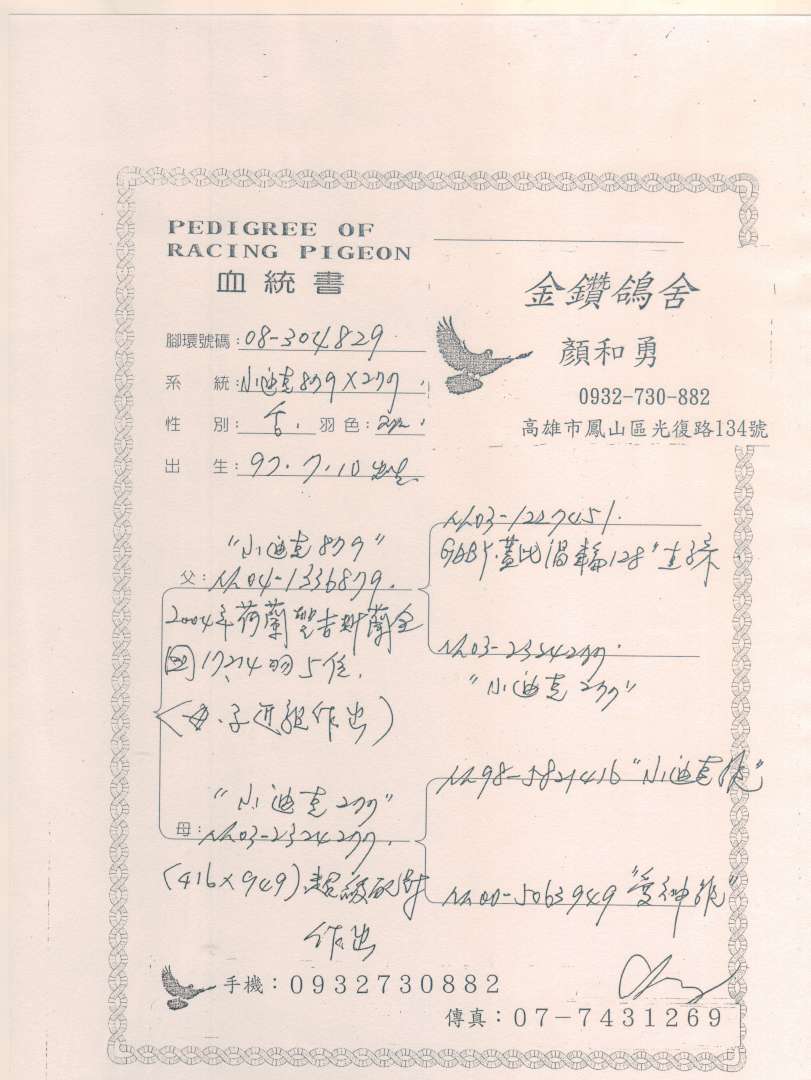 PEDIGREE OF
RACING PIGEON
血統書
金鑽鴿舍
顏和勇
0932-730-882
高雄市鳳山區光復路134號
腳環號碼：08-304829.
系統：小迪克879X277
性別： 羽色：
出生：97.7.10
"小迪克879"
父：NL04-1336879.
2004年荷蘭聖吉斯蘭全
國17214羽5位.
(母.子近親作出)
NL03-1227451.
GBBY.蓋比"渦輪128"直孫
NL03-2324277.
"小迪克277"
"小迪克277"
母：NL03-2324277.
(416X949)超級配對
作出
NL98-5821416"小迪克"
NL00-5063949"愛神"
手機：0932730882
傳真：07-7431269